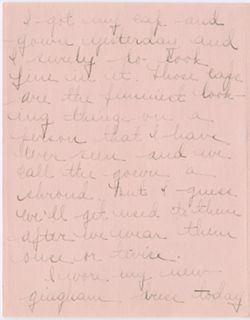 I got my cap and
gown yesterday and
I surely do look
fine in it. Those caps
are the funniest look-
ing things on a
person that I have
ever seen and we
call the gown a
shroud. But I guess
we'll get used to them
after we wear them
once or twice.
I wore my new
gingham dress today